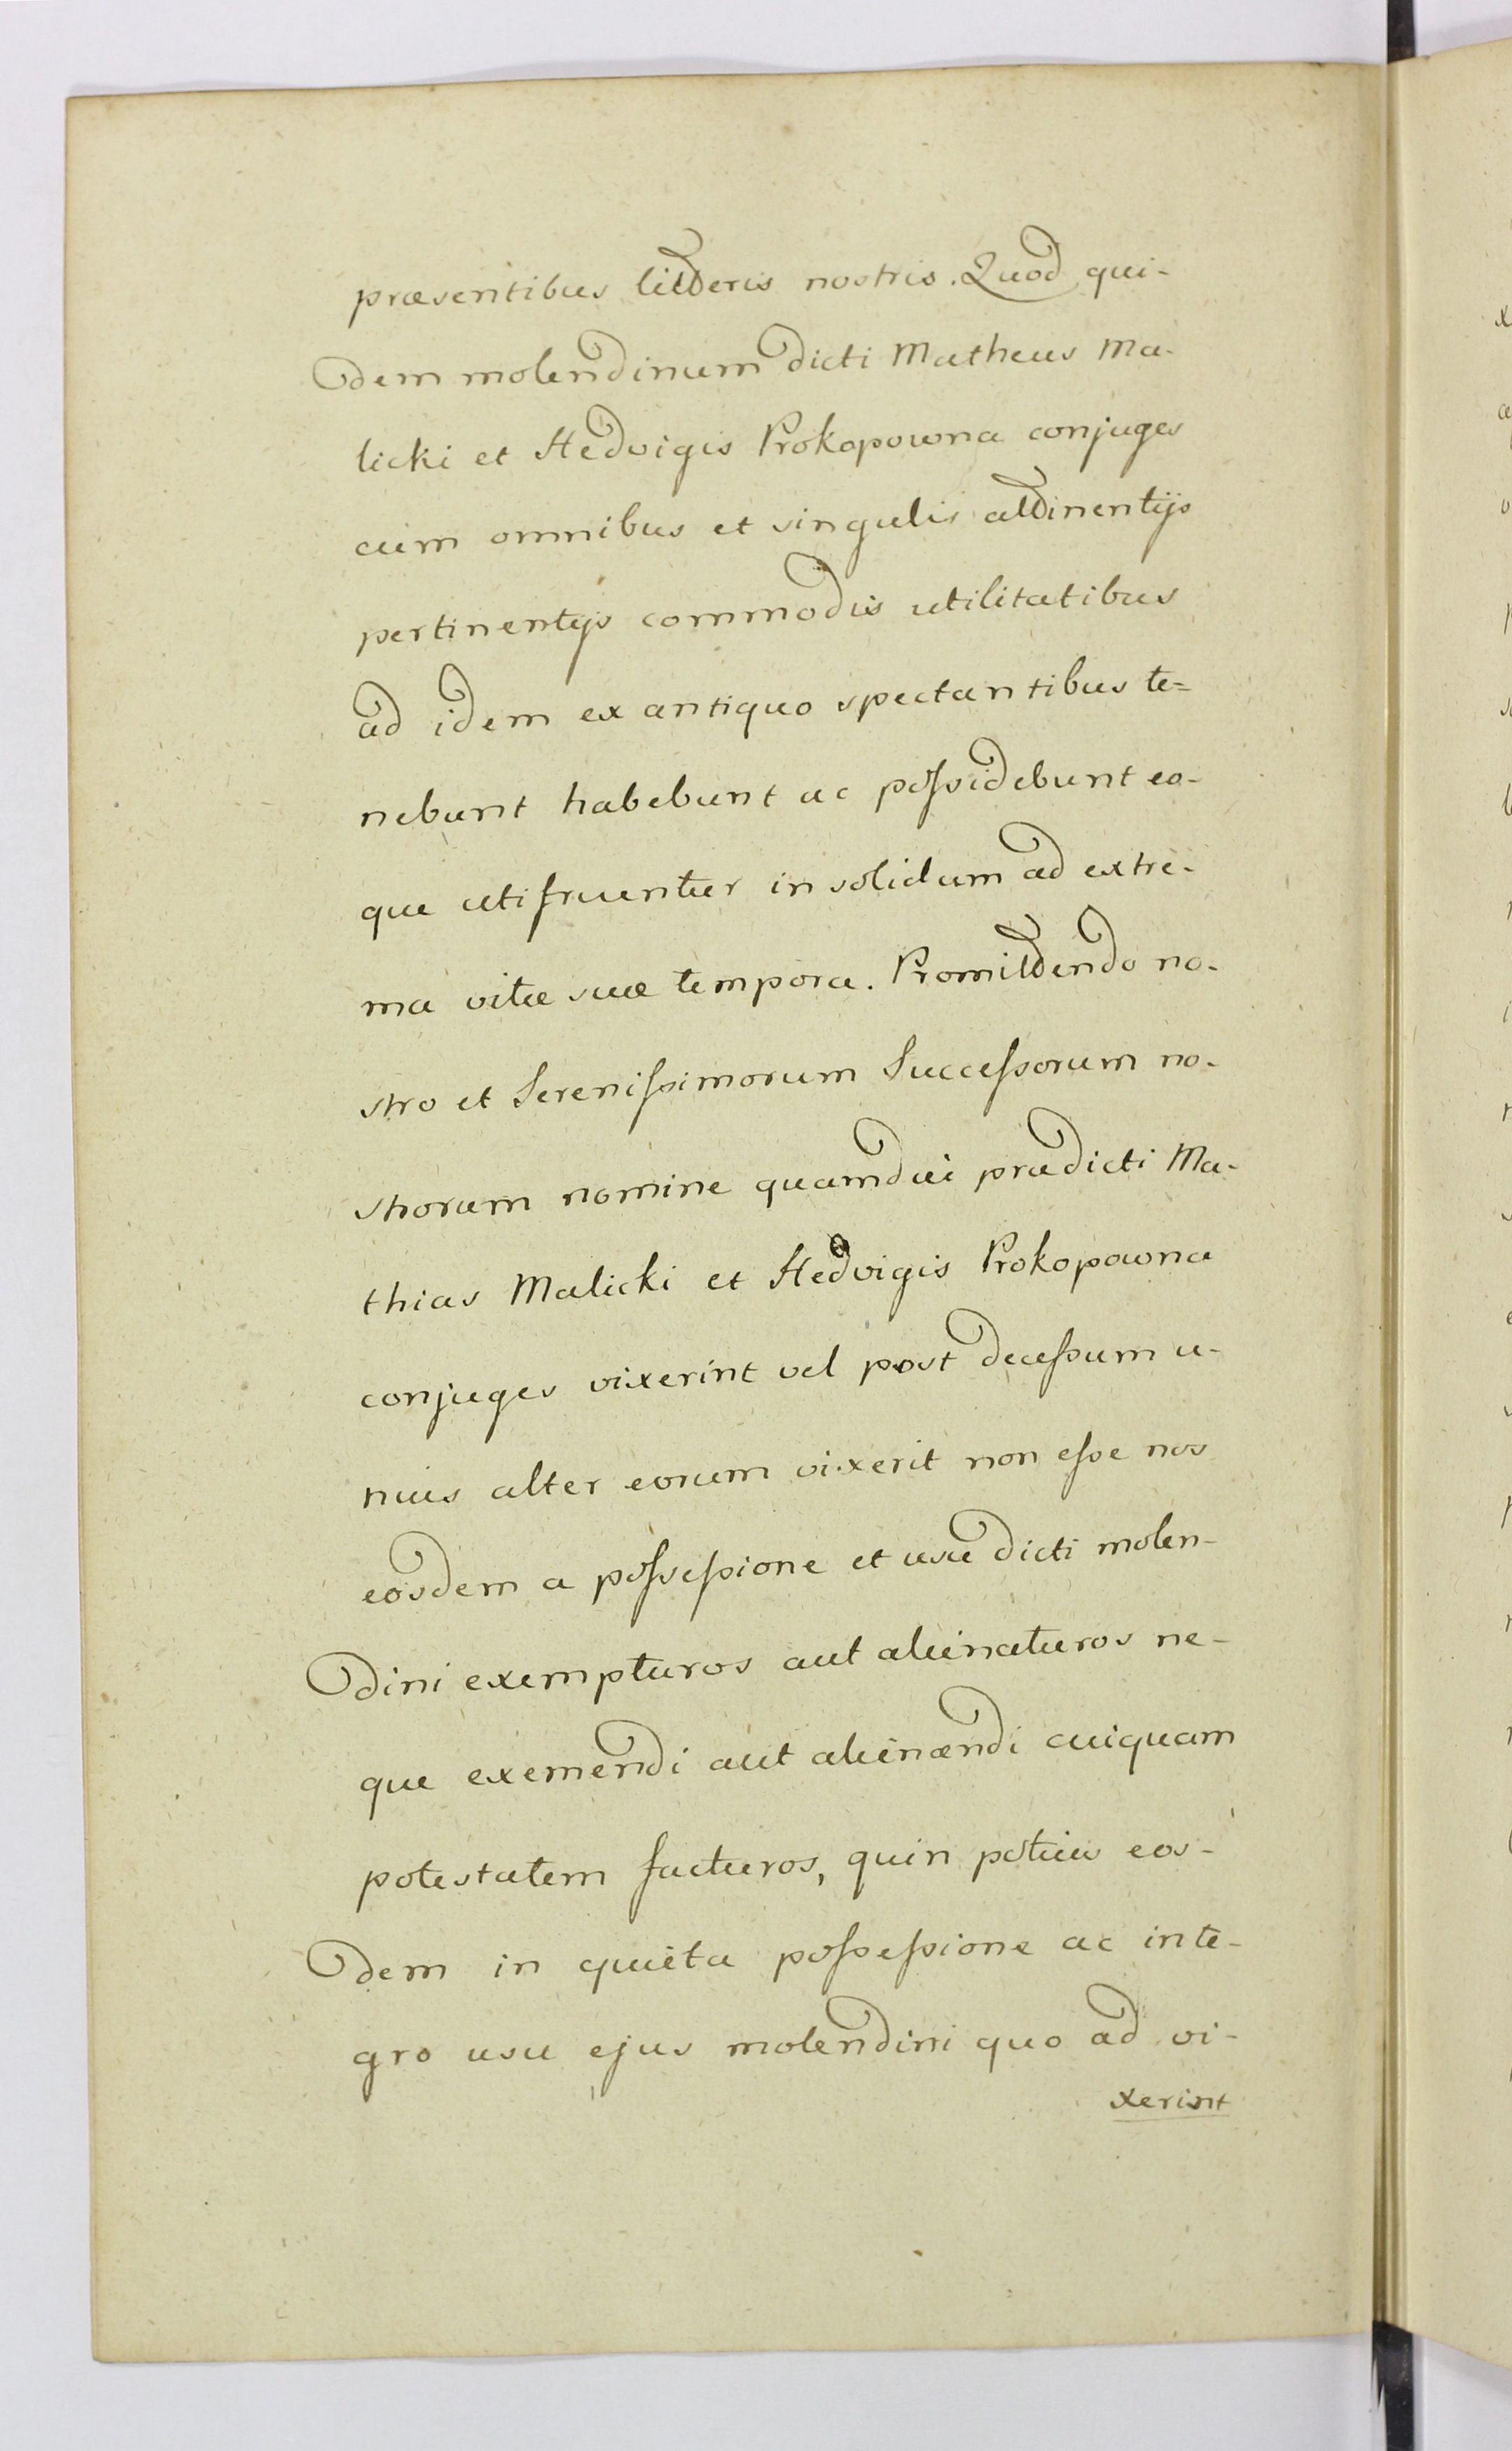 præsentibus litteris nostris. Quod qui-
dem molendinum dicti Matheus Ma-
licki et Hedvigis Prokopowna conjuges
cum omnibus et singulis attinentijs
pertinentijs commodis utilitatibus
ad idem ex antiquo spectantibus te-
nebunt habebunt ac possidebunt eo-
que utifruentur in solidum ad extre-
ma vitæ suæ tempora. Promittendo no-
stro et Serenissimorum Successorum no-
strorum nomine quamdui prædicti Ma-
thias Malicki et Hedvigis Prokopowna
conjuges vixerint vel post decessum u-
nius alter eorum vixerit non esse nos
eosdem a possessione et usu dicti molen-
dini exempturos aut alienaturos ne-
que exemendi aut alienændi cuiquam
potestatem facturos, quin potius eos-
dem in quieta possessione ac inte-
gro usu ejus molendini quo ad vi-
xerint